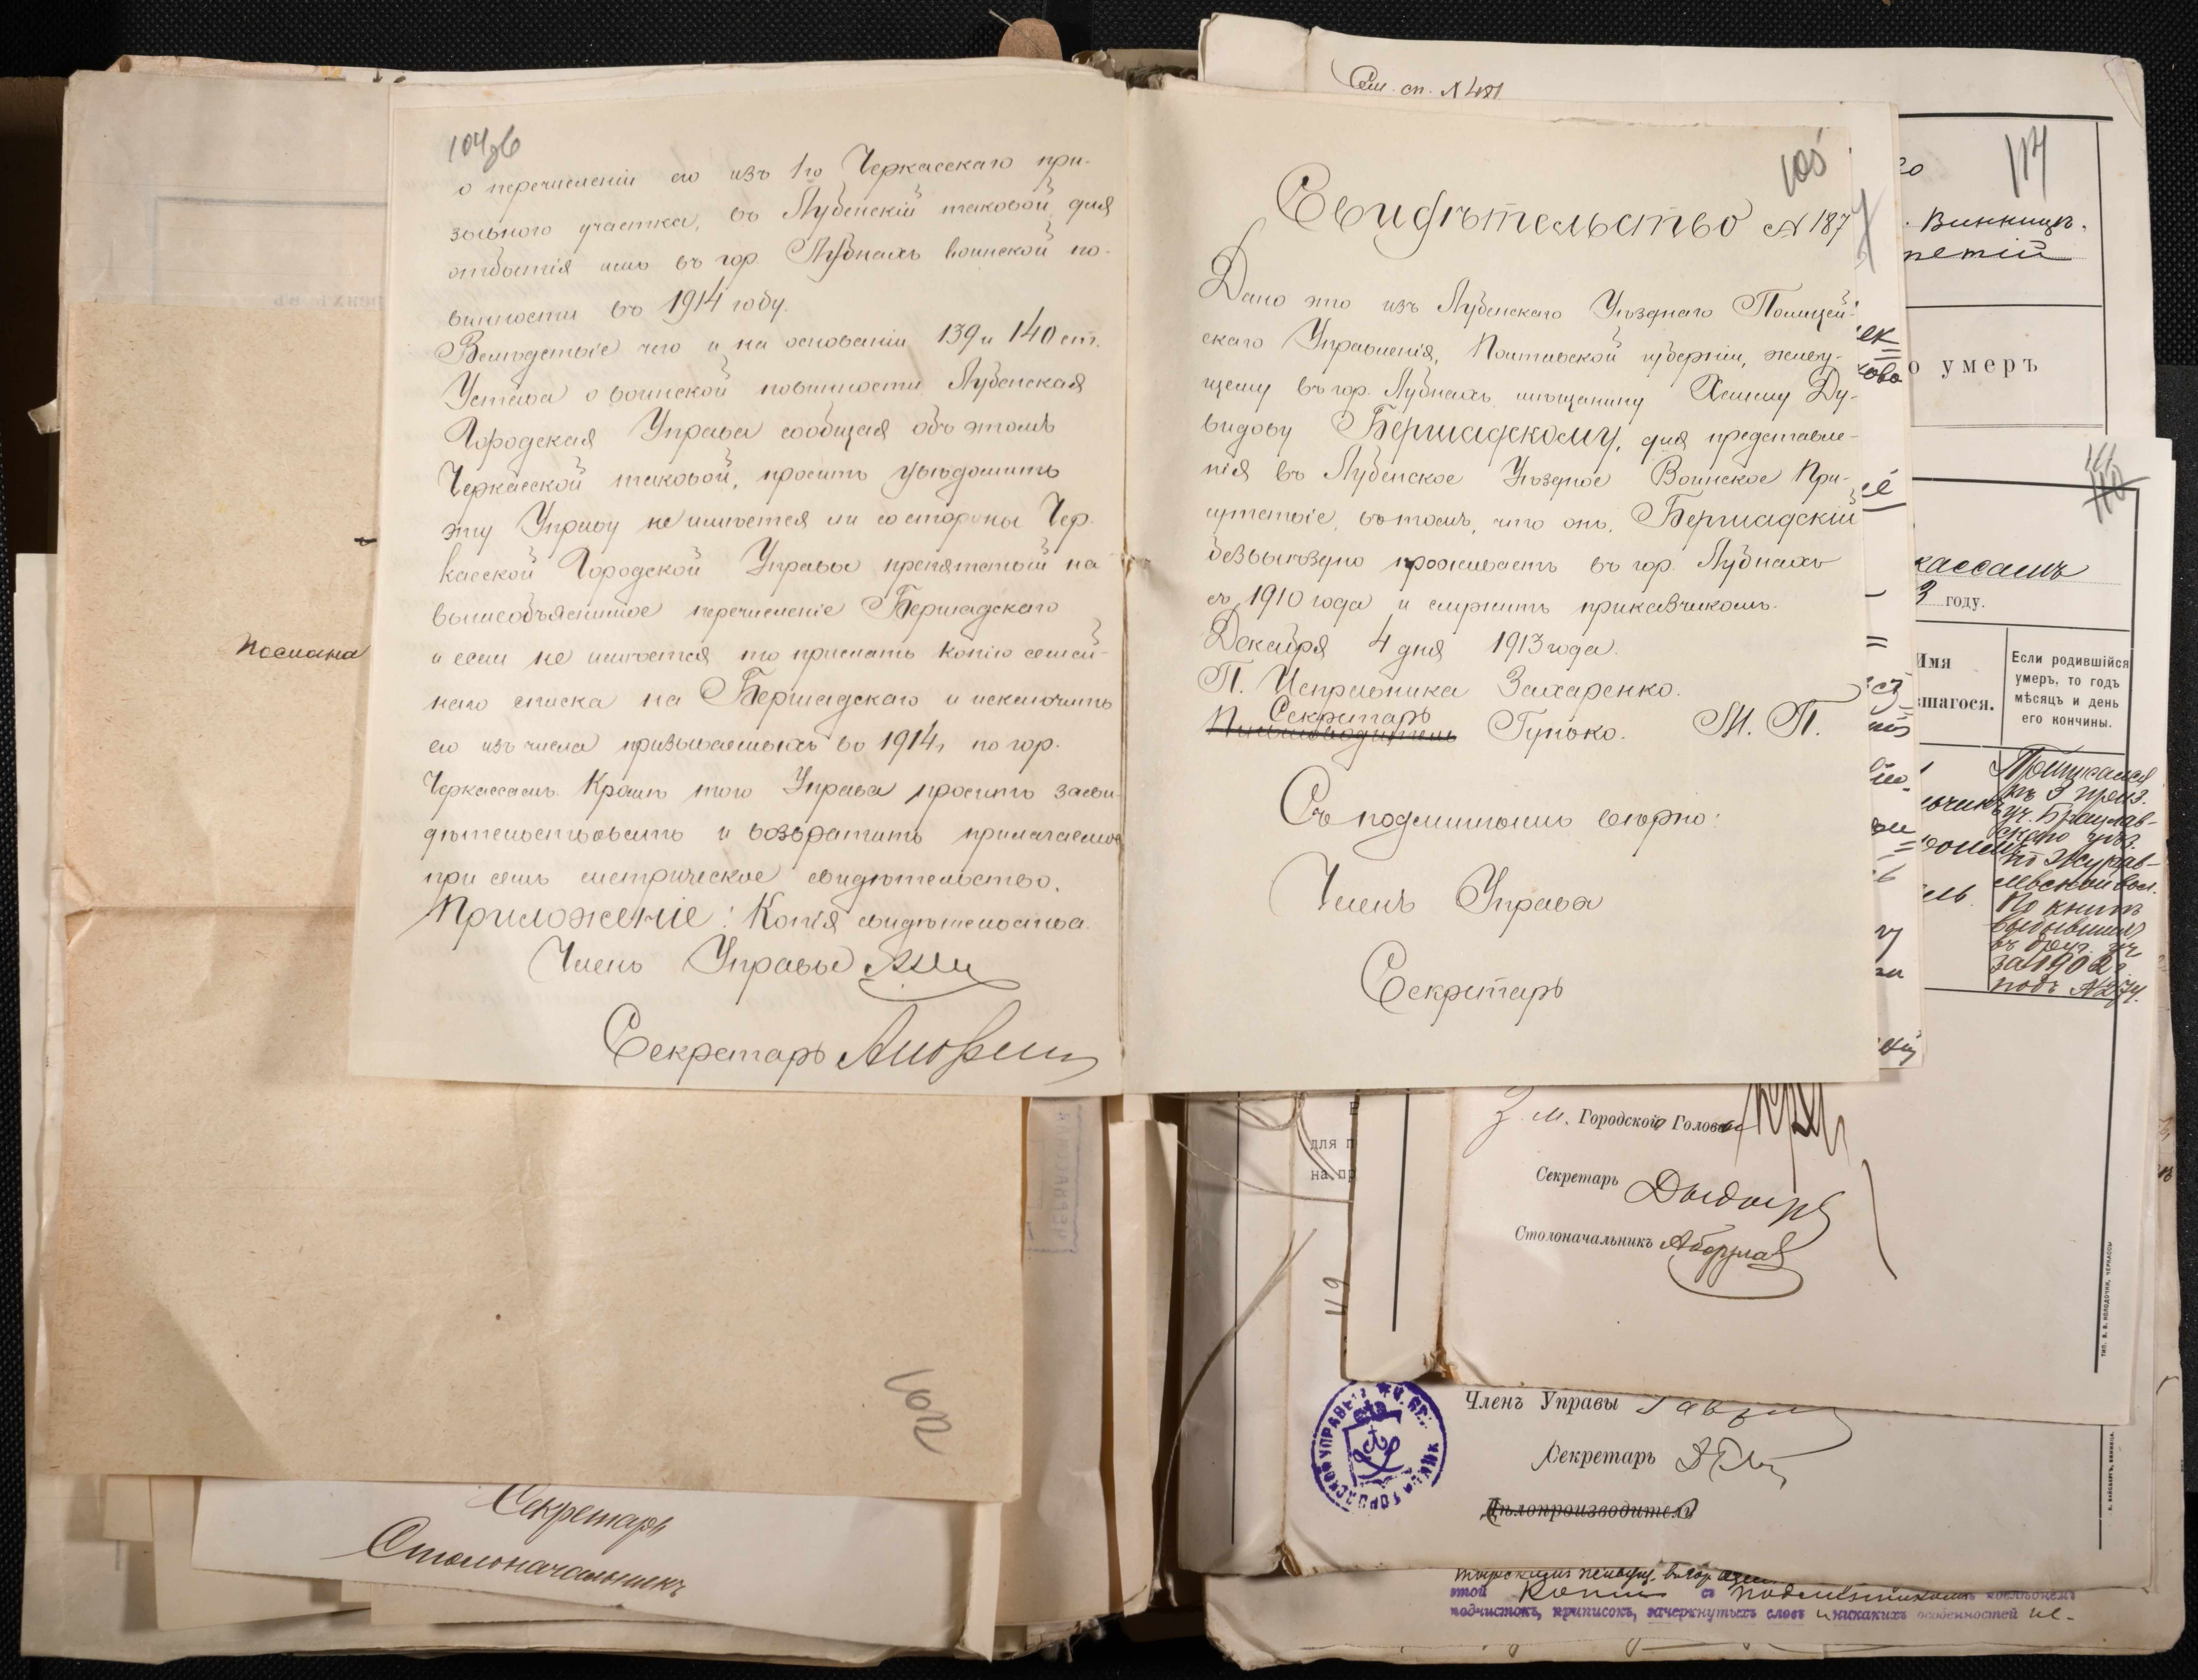 104 об
о перечисленіи его изъ 1го Черкасскаго при-
зывного участка, въ Лубенскій таковой для
отбытія имъ въ гор. Лубнахъ воинской по-
винности въ 1914 году.
Вслѣдствіе чего и на основаніи 139 и 140 ст.
Устава о воинской повинности Лубенская
Городская Управа сообщая объ этомъ
Черкасской таковой, проситъ увѣдомить
эту Управу не имѣется ли со стороны Чер-
касской Городской Управы препятствій на
вышеобъясненное перечисленіе Бершадскаго
и если не имѣется то прислать копію семей-
наго списка на Бершадскаго и исключить
его изъ числа призываемыхъ въ 1914 г. по гор.
Черкассамъ. Кромѣ того Управа проситъ засви-
дѣтельствовать и возвратить прилагаемое
при семъ метрическое свидѣтельство.
Приложеніе: Копія свидѣтельства.
Членъ Управы
Секретарь
Послана
102
Секретарь
Столоначальникъ
Сем. сп. № 481
105
Свидѣтельство № 187
Дано это изъ Лубенскаго Уѣзднаго Полицей-
скаго Управленія, Полтавской губерніи, живу-
щему въ гор. Лубнахъ мѣщанину Хаиму Ду-
видову Бершадскому, для представле-
нія въ Лубенское Уѣздное Воинское При-
сутствіе, въ томъ, что онъ, Бершадскій
безвыѣздно проживаетъ въ гор. Лубнахъ
съ 1910 года и служитъ приказчикомъ.
Декабря 4 дня 1913 года.
П. Исправника Захаренко.
Секретарь
Письмоводитель Гунько. М. П.
Съ подлиннымъ вѣрно:
Членъ Управы
Секретарь
117
. Винницѣ.
третій
о умеръ
кассамъ
3 году.
Имя
вшагося.
Если родившійся
умеръ, то годъ
мѣсяцъ и день
его кончины.
Приписался
къ 3 приз.
уч. Брацлав-
скаго уѣз.
по Журав-
левской вол.
По книгѣ
выбывшихъ
въ друг. уч
за 1902 г.
подъ № 274.
З. М. Городского Головы
Секретарь
Столоначальникъ
119
для п
на пр
ТИП. В. В. КОЛОДОЧКИ, ЧЕРКАССЫ
Членъ Управы
Секретарь
Дѣлопроизводитель
этой копіи съ подлинникомъ
подчистокъ, приписокъ, зачеркнутыхъ словъ и никакихъ особенностей не-